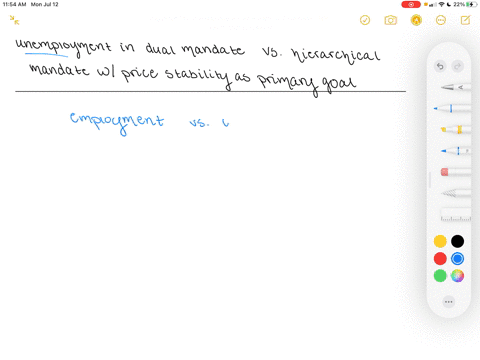 11:54 AM Mon Jul 12
22%
unemployment in dual mandate vs. hierarchical
mandate w/ price stability as primary goal
employment vs.